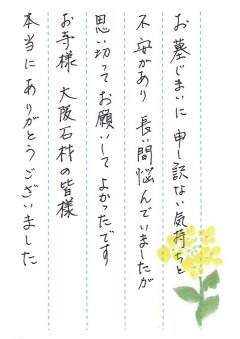 お墓じまいに 申し訳ない気持ちと
不安があり 長い間悩んでいましたが
思い切ってお願いして よかったです
お寺様 大阪石材の皆様
本当に ありがとうございました